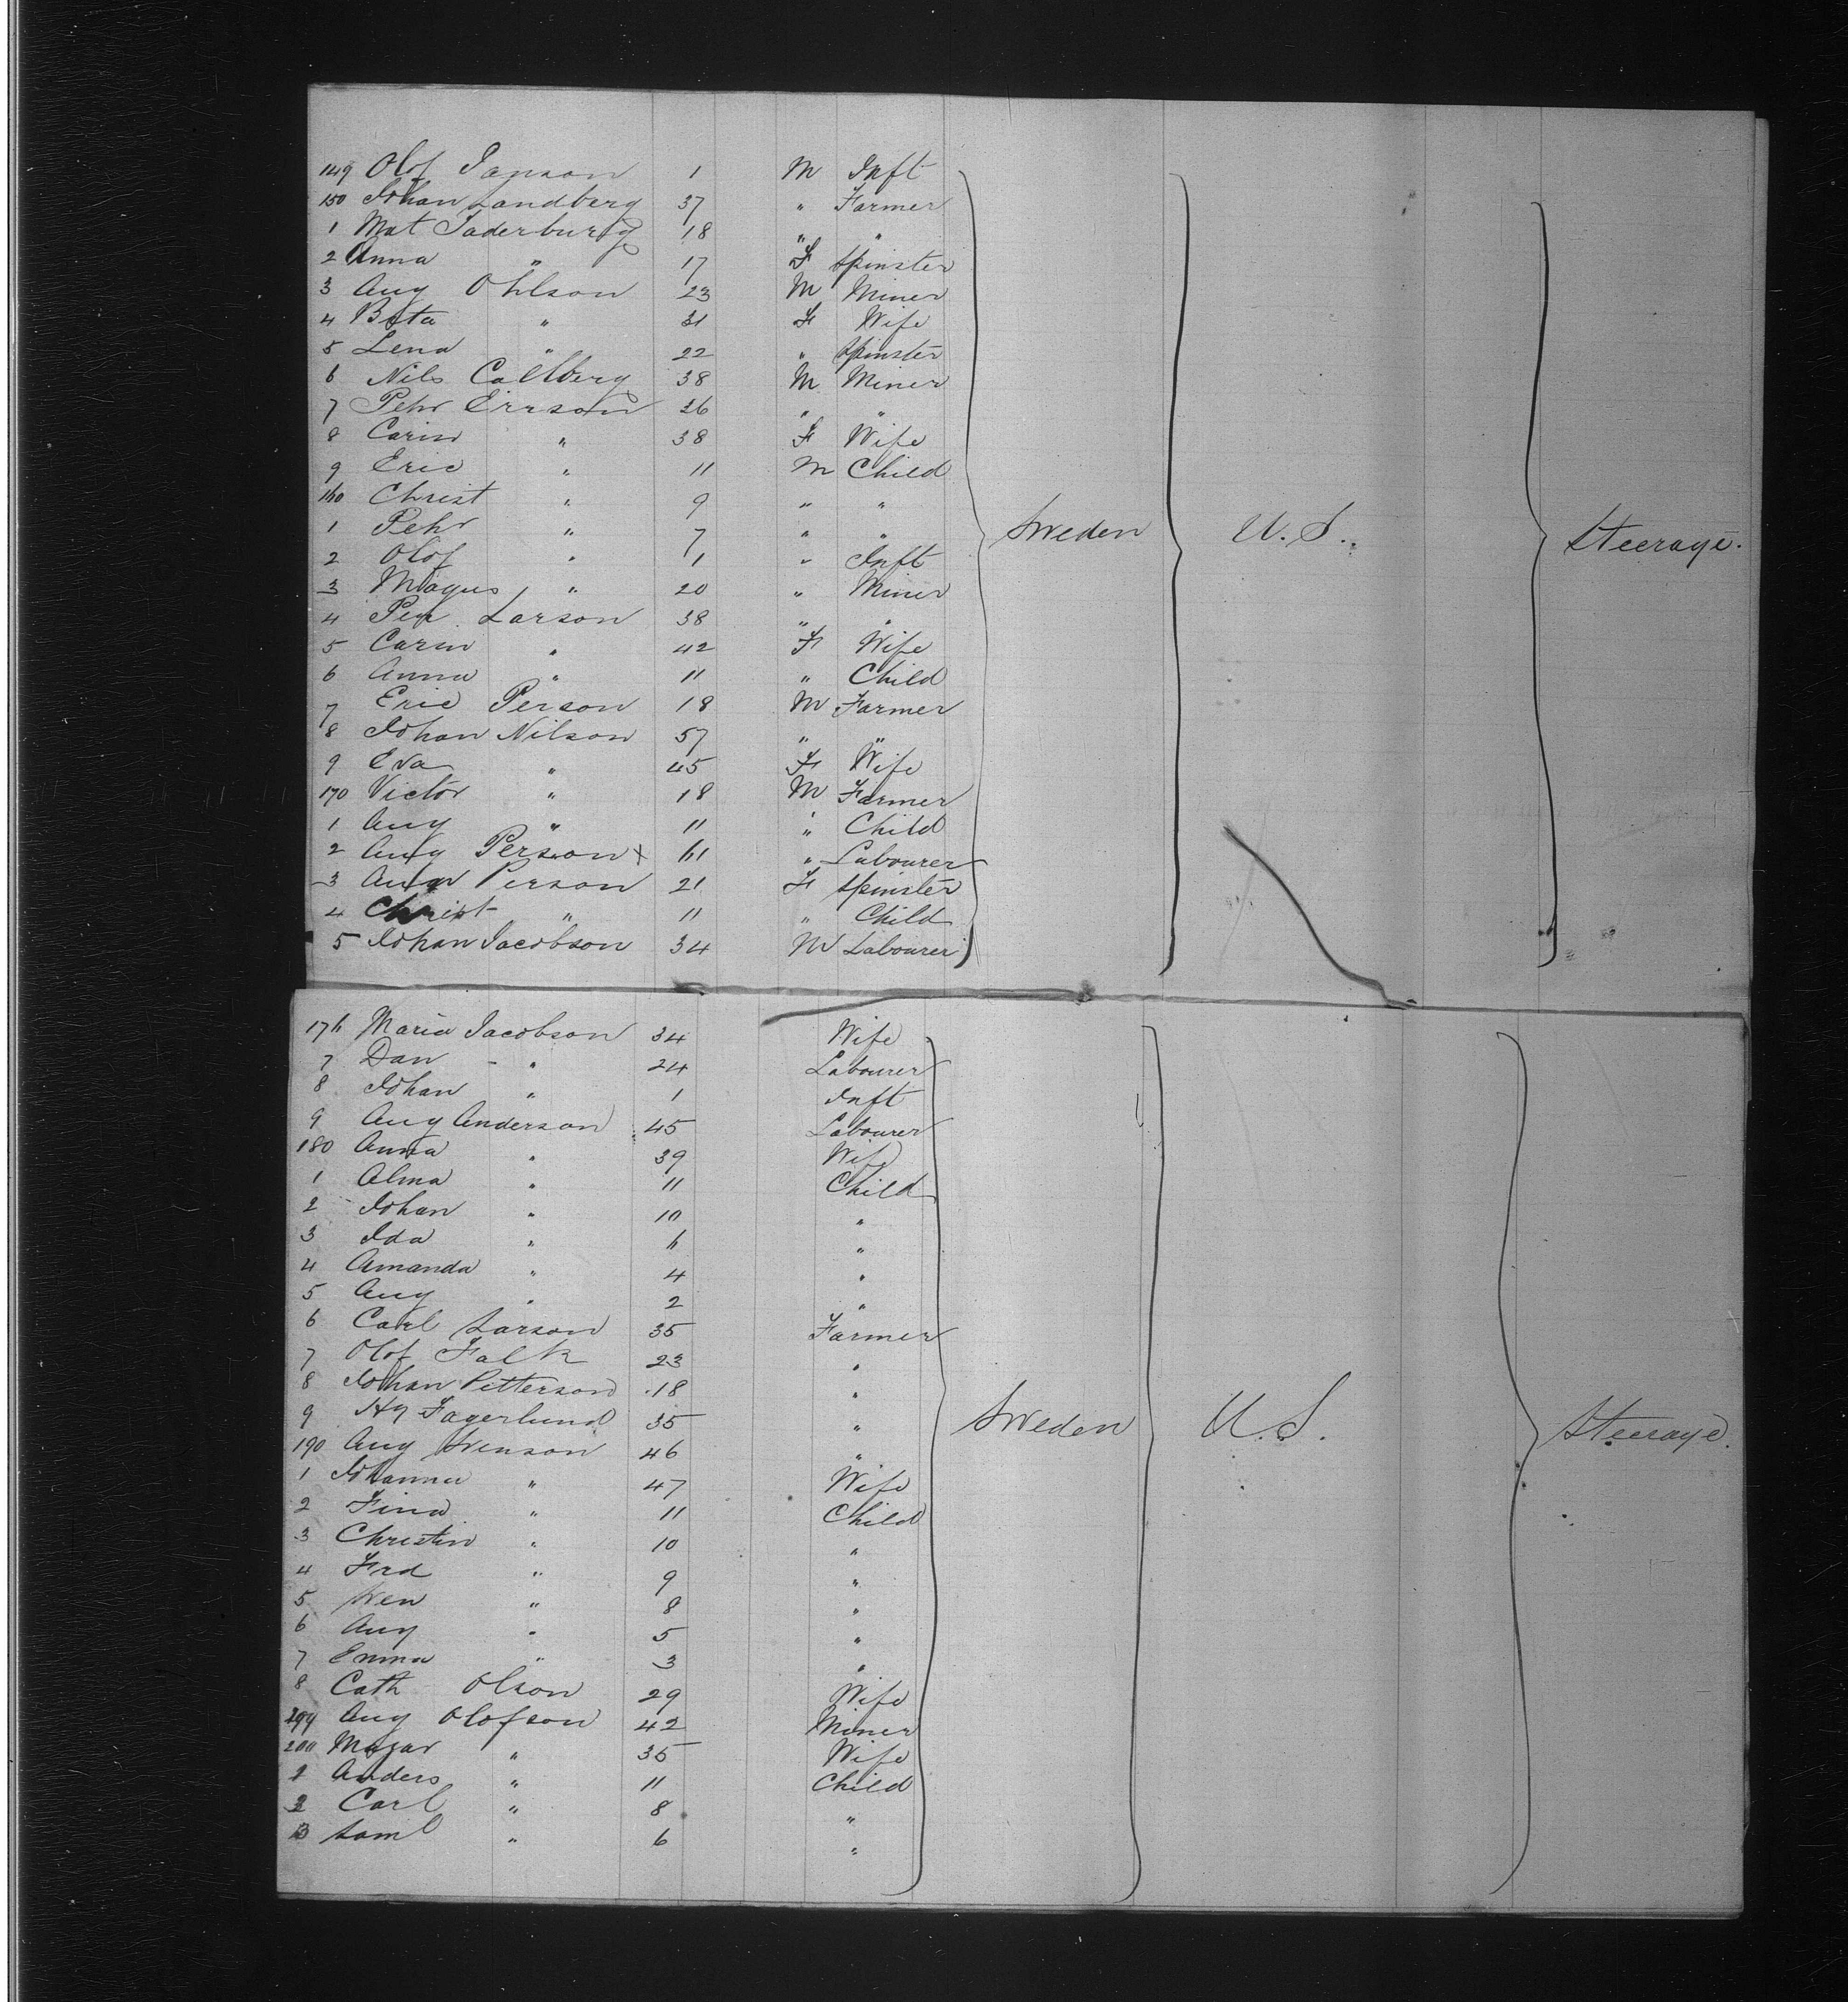 149 Olof Janson 1 M Inft
150 Johan Landberg 37 " Farmer
1 Mat Jaderburg 18 " "
2 Anna " 17 F Spinster
3 Aug Ohlson 23 M Miner
4 Brita " 31 F Wife
5 Lena " 22 " Spinster
6 Nils Callberg 38 M Miner
7 Pehr Ersson 36 " "
8 Carin " 38 F Wife
9 Eric " 11 M Child
160 Christ " 9 " "
1 Pehr " 7 " "
Sweden U. S. Steerage.
2 Olof " 1 " Inft
3 Magus " 20 " Miner
4 Per Larson 38 " "
5 Carin " 42 F Wife
6 Anna " 11 " Child
7 Eric Person 18 M Farmer
8 Johan Nilson 57 " "
9 Eva " 45 F Wife
170 Victor " 18 M Farmer
1 Aug " 11 " Child
2 Aug Person x 61 " Labourer
3 Person 21 F Spinster
4 Christ " 11 " Child
5 Johan Jacobson 34 M Labourer
176 Maria Jacobson 34 Wife
7 Dan " 24 Labourer
8 Johan " 1 Inft
9 Aug Anderson 45 Labourer
180 Anna " 39 Wife
1 Alma " 11 Child
2 Johan " 10 "
3 Ida " 6 "
4 Amanda " 4 "
5 Aug " 2 "
6 Carl Larson 35 Farmer
7 Olof Falk 23 "
8 Johan Petterson 18 "
9 Hy Fagerlund 35 "
Sweden U. S. Steerage.
190 Aug Svenson 46 "
1 Johanna " 47 Wife
2 Fina " 11 Child
3 Christin " 10 "
4 Frd " 9 "
5 Sven " 8 "
6 Aug " 5 "
7 Emma " 3 "
8 Cath Olson 29 Wife
199 Aug Olofson 42 Miner
200 " 35 Wife
1 Anders " 11 Child
2 Carl " 8 "
3 Saml " 6 "